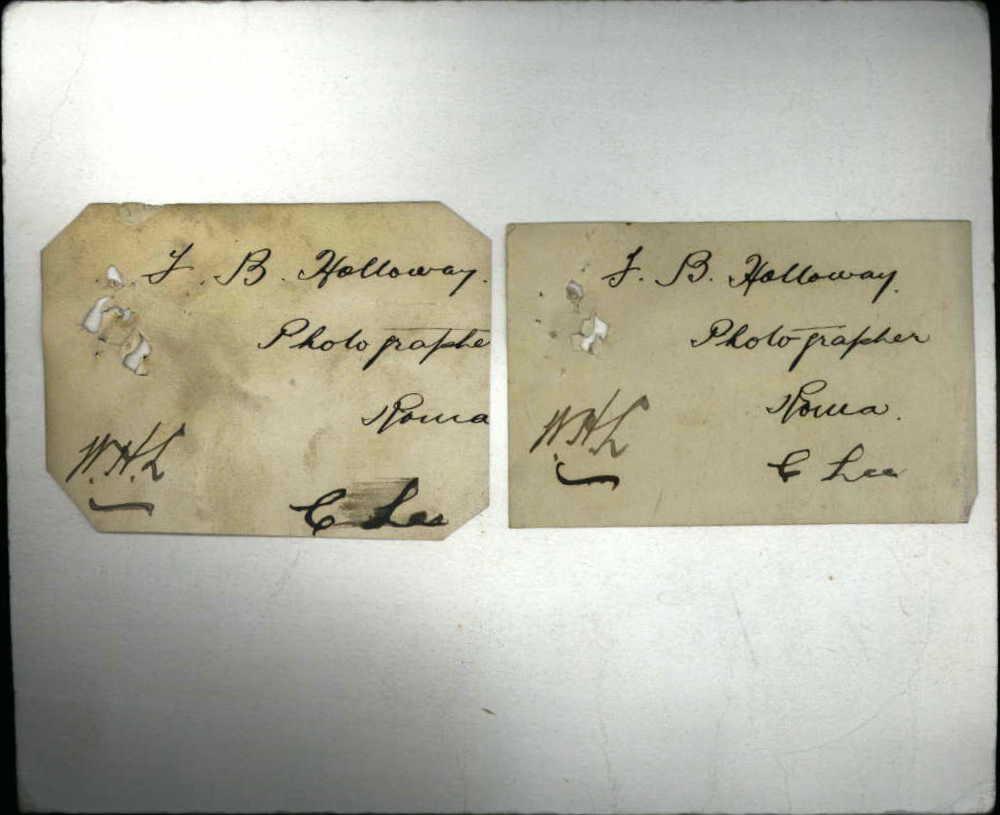 F. B. Holloway.
Photographe
Roma
W.H.L
C Lee
F. B. Holloway.
Photographer
Roma.
W.H.L
C Lee